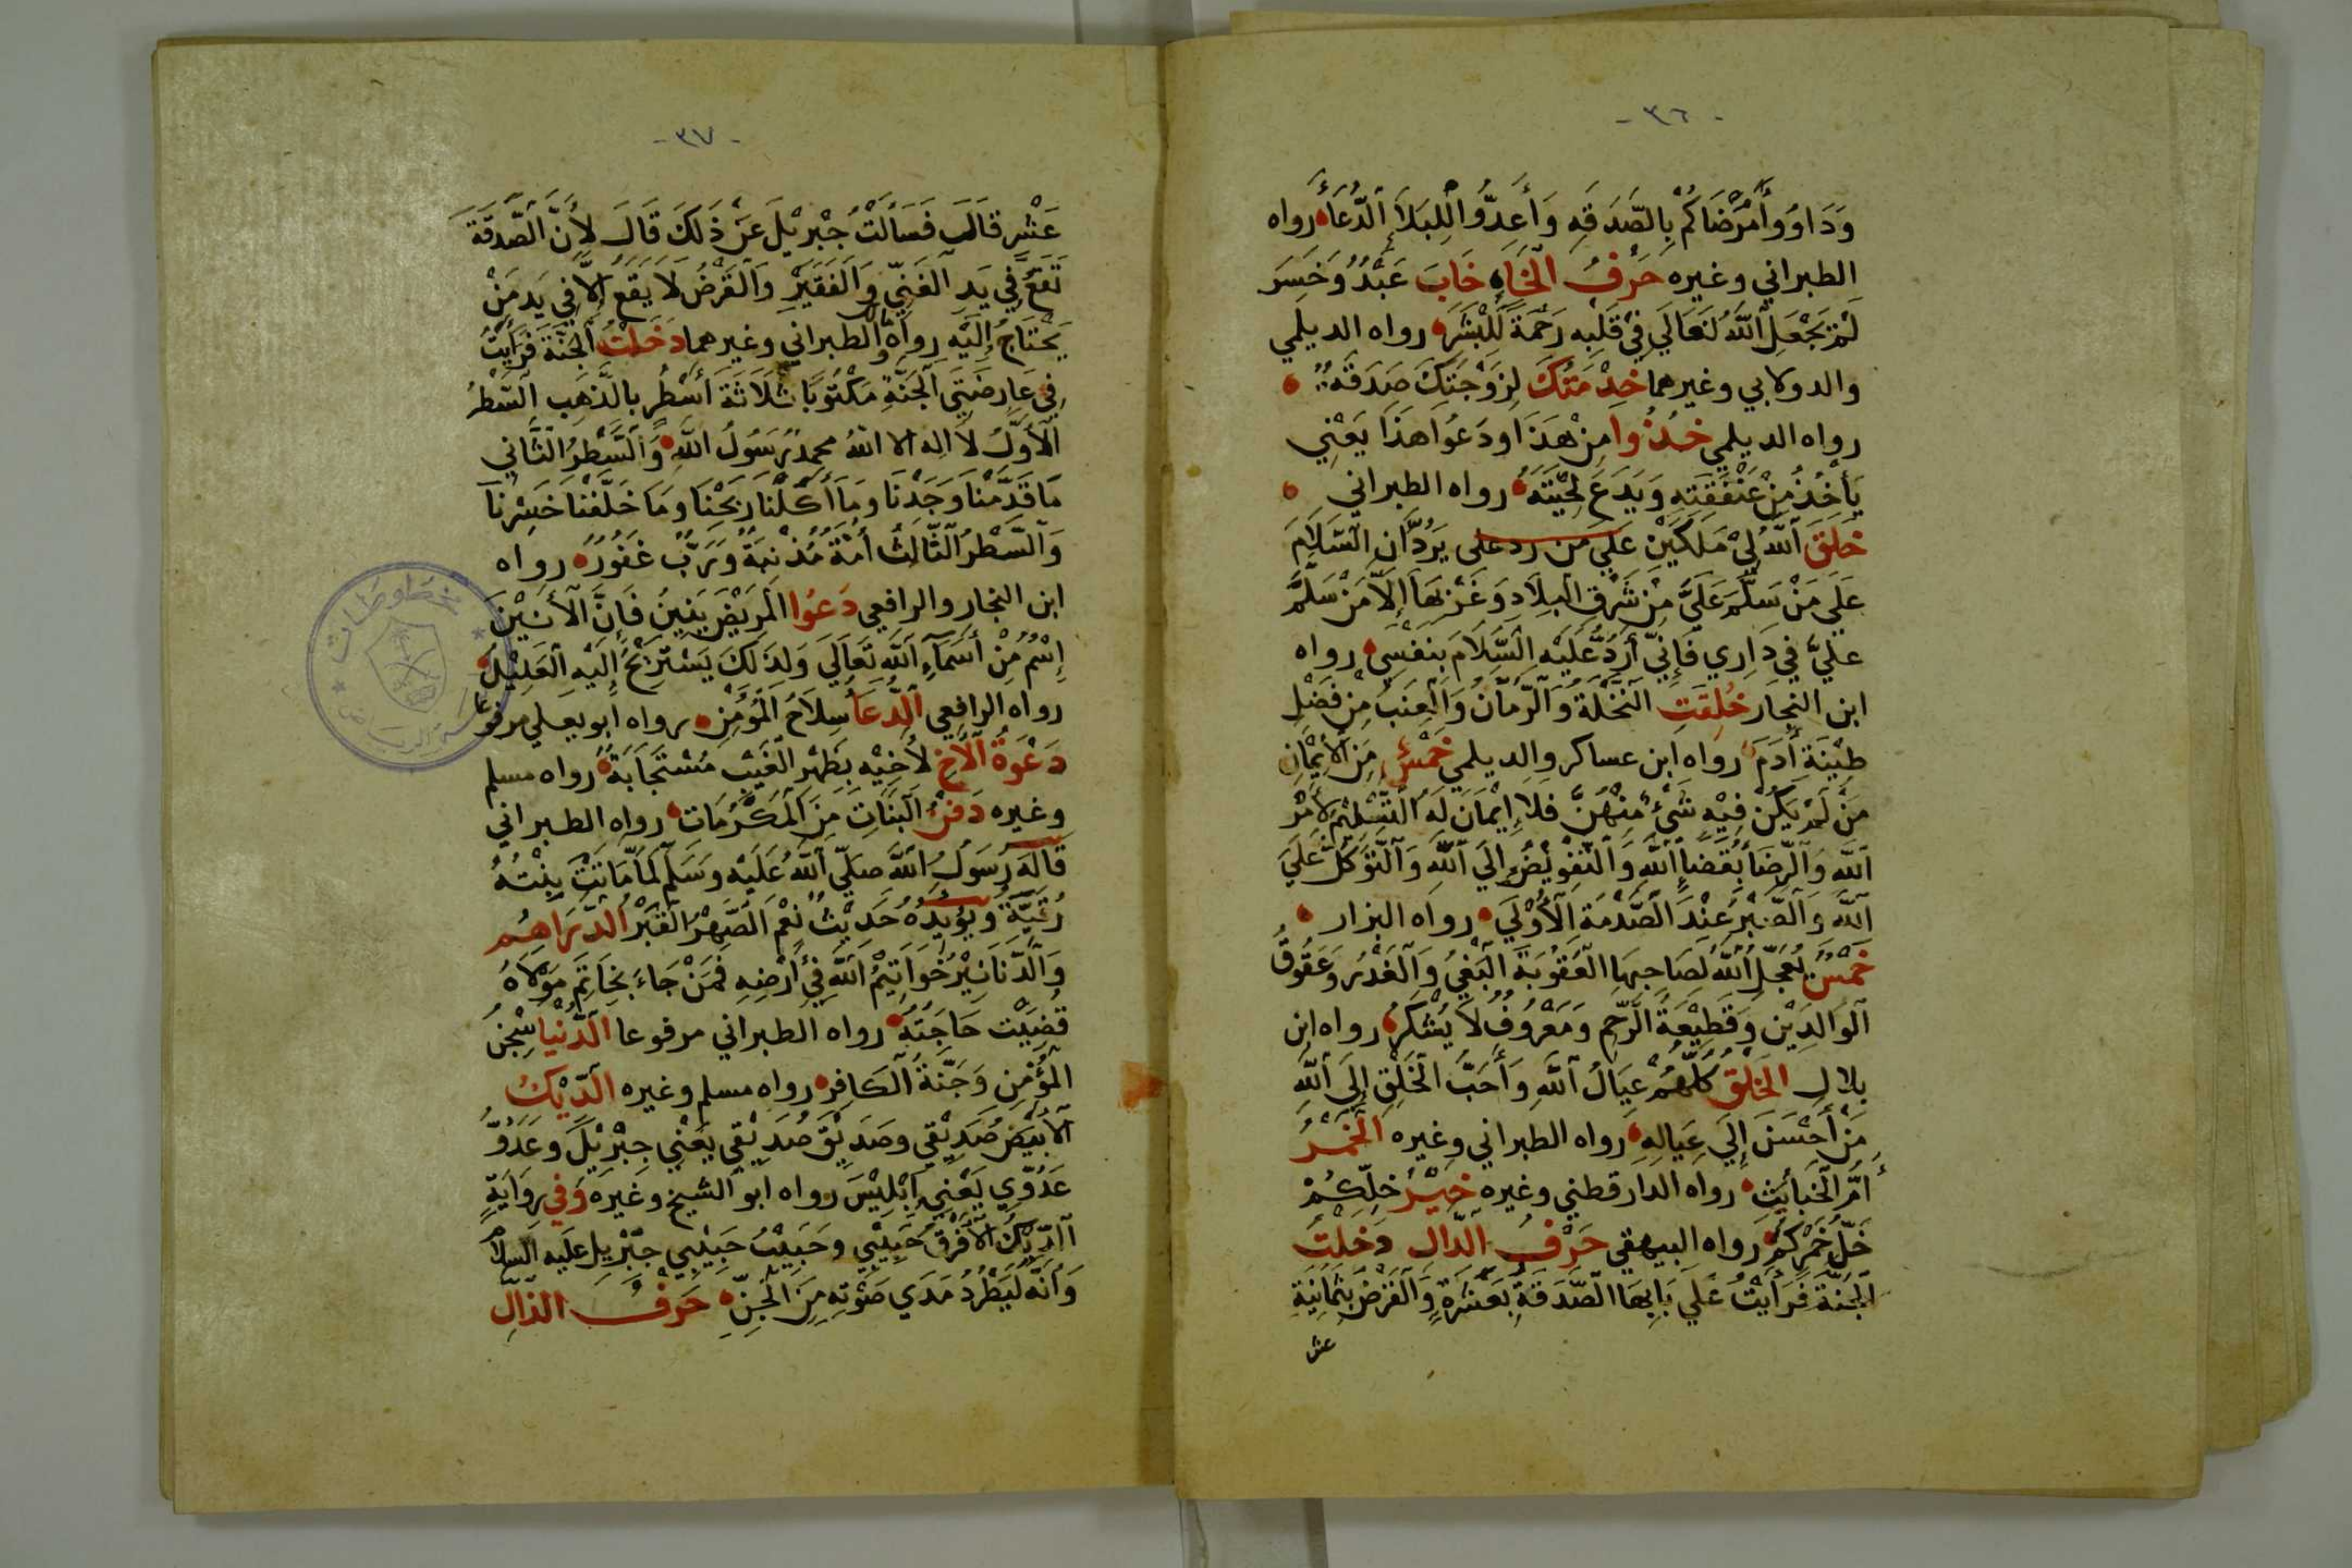 - ٣٦ -
وَدَاوُوا أَمْرَضَاكُمْ بِالصَّدَقَةِ وَأَعِدُّوا لِلْبَلَاءِ الدُّعَاءَ رواه
الطبراني وغيره حَرْفُ الْخَاءِ خَابَ عَبْدٌ وَخَسِرَ
لَمْ يَجْعَلِ اللَّهُ تَعَالَى فِي قَلْبِهِ رَحْمَةً لِلْبَشَرِ رواه الديلمي
والدولابي وغيرهما خِدْمَتُكَ لِزَوْجَتِكَ صَدَقَةٌ
رواه الديلمي خُذُوا مِنْ هَذَا وَدَعُوا هَذَا يَعْنِي
يَأْخُذُ مِنْ عَنْفَقَتِهِ وَيَدَعُ لِحْيَتَهُ رواه الطبراني
خَلَقَ اللَّهُ لِي مَلَكَيْنِ عَلَى مَنْ رد على يَرُدَّانِ السَّلَامَ
عَلَى مَنْ سَلَّمَ عَلَيَّ مِنْ شَرْقِ الْبِلَادِ وَغَرْبِهَا إِلَّا مَنْ سَلَّمَ
عَلَيَّ فِي دَارِي فَإِنِّي أَرُدُّ عَلَيْهِ السَّلَامَ بِنَفْسِي رواه
ابن النجار خُلِقَتِ النَّخْلَةُ وَالرُّمَّانُ وَالْعِنَبُ مِنْ فَضْلِ
طِينَةِ آدَمَ رواه ابن عساكر والديلمي خَمْسٌ مِنَ الْإِيْمَانِ
مَنْ لَمْ يَكُنْ فِيْهِ شَيْءٌ مِنْهُنَّ فَلَا إِيْمَانَ لَهُ التَّسْلِيْمُ لِأَمْرِ
اللَّهِ وَالرِّضَا بِقَضَاءِ اللَّهِ وَالتَّفْوِيْضُ إِلَى اللَّهِ وَالتَّوَكُّلُ عَلَى
اللَّهِ وَالصَّبْرُ عِنْدَ الصَّدْمَةِ الْأُوْلَى رواه البزار
خَمْسٌ يُعَجِّلُ اللَّهُ لِصَاحِبِهَا الْعُقُوبَةَ الْبَغْيُ وَالْغَدْرُ وَعُقُوقُ
الْوَالِدَيْنِ وَقَطِيْعَةُ الرَّحِمِ وَمَعْرُوفٌ لَا يُشْكَرُ رواه ابن
بلال الْخَلْقُ كُلُّهُمْ عِيَالُ اللَّهِ وَأَحَبُّ الْخَلْقِ إِلَى اللَّهِ
مَنْ أَحْسَنَ إِلَى عِيَالِهِ رواه الطبراني وغيره الْخَمْرُ
أُمُّ الْخَبَائِثِ رواه الدارقطني وغيره خَيْرُ خَلِّكُمْ
خَلُّ خَمْرِكُمْ رواه البيهقي حَرْفُ الدَّالِ دَخَلْتُ
الْجَنَّةَ فَرَأَيْتُ عَلَى بَابِهَا الصَّدَقَةُ بِعَشْرَةٍ وَالْقَرْضُ بِثَمَانِيَةَ
عش
- ٣٧ -
عَشَرٍ قَالَ فَسَأَلْتُ جِبْرِيْلَ عَنْ ذَلِكَ قَالَ لِأَنَّ الصَّدَقَةَ
تَقَعُ فِي يَدِ الْغَنِيِّ وَالْفَقِيْرِ وَالْقَرْضُ لَا يَقَعُ إِلَّا فِي يَدِ مَنْ
يَحْتَاجُ إِلَيْهِ رواه الطبراني وغيرهما دَخَلْتُ الْجَنَّةَ فَرَأَيْتُ
فِي عَارِضَتَيِ الْجَنَّةِ مَكْتُوبًا ثَلَاثَةَ أَسْطُرٍ بِالذَّهَبِ السَّطْرُ
الْأَوَّلُ لَا إِلَهَ إِلَّا اللَّهُ مُحَمَّدٌ رَسُولُ اللَّهِ وَالسَّطْرُ الثَّانِي
مَا قَدَّمْنَا وَجَدْنَا وَمَا أَكَلْنَا رَبِحْنَا وَمَا خَلَّفْنَا خَسِرْنَا
وَالسَّطْرُ الثَّالِثُ أُمَّةٌ مُذْنِبَةٌ وَرَبٌّ غَفُورٌ رواه
ابن النجار والرافعي دَعُوا الْمَرِيْضَ يَئِنُّ فَإِنَّ الْأَنِيْنَ
إِسْمٌ مِنْ أَسْمَاءِ اللَّهِ تَعَالَى وَلِذَلِكَ يَسْتَرِيْحُ إِلَيْهِ الْعَلِيْلُ
رواه الرافعي الدُّعَاءُ سِلَاحُ الْمُؤْمِنِ رواه ابو يعلي مرفوعا
دَعْوَةُ الْأَخِ لِأَخِيْهِ بِظَهْرِ الْغَيْبِ مُسْتَجَابَةٌ رواه مسلم
وغيره دَفْنُ الْبَنَاتِ مِنَ الْمَكْرُمَاتِ رواه الطبراني
قَالَهُ رَسُولُ اللَّهِ صَلَّى اللَّهُ عَلَيْهِ وَسَلَّمَ لَمَّا مَاتَتْ بِنْتُهُ
رُقَيَّةُ وَيُؤَيِّدُهُ حَدِيْثُ نِعْمَ الصِّهْرُ الْقَبْرُ الدَّرَاهِمُ
وَالدَّنَانِيْرُ خَوَاتِيْمُ اللَّهِ فِي أَرْضِهِ فَمَنْ جَاءَ بِخَاتَمِ مَوْلَاهُ
قُضِيَتْ حَاجَتُهُ رواه الطبراني مرفوعا الدُّنْيَا سِجْنُ
الْمُؤْمِنِ وَجَنَّةُ الْكَافِرِ رواه مسلم وغيره الدِّيْكُ
الْأَبْيَضُ صَدِيْقِي وَصَدِيْقُ صَدِيْقِي يَعْنِي جِبْرِيْلَ وَعَدُوُّ
عَدُوِّي يَعْنِي إِبْلِيْسَ رواه ابو الشيخ وغيره وَفِي رِوَايَةٍ
الدِّيْكُ الْأَفْرَقُ حَبِيْبِي وَحَبِيْبُ حَبِيْبِي جِبْرِيل عليه السلام
وَأَنَّهُ لَيَطْرُدُ مَدَى صَوْتِهِ مِنَ الْجِنِّ حَرْفُ الذَّالِ
مخطوطات